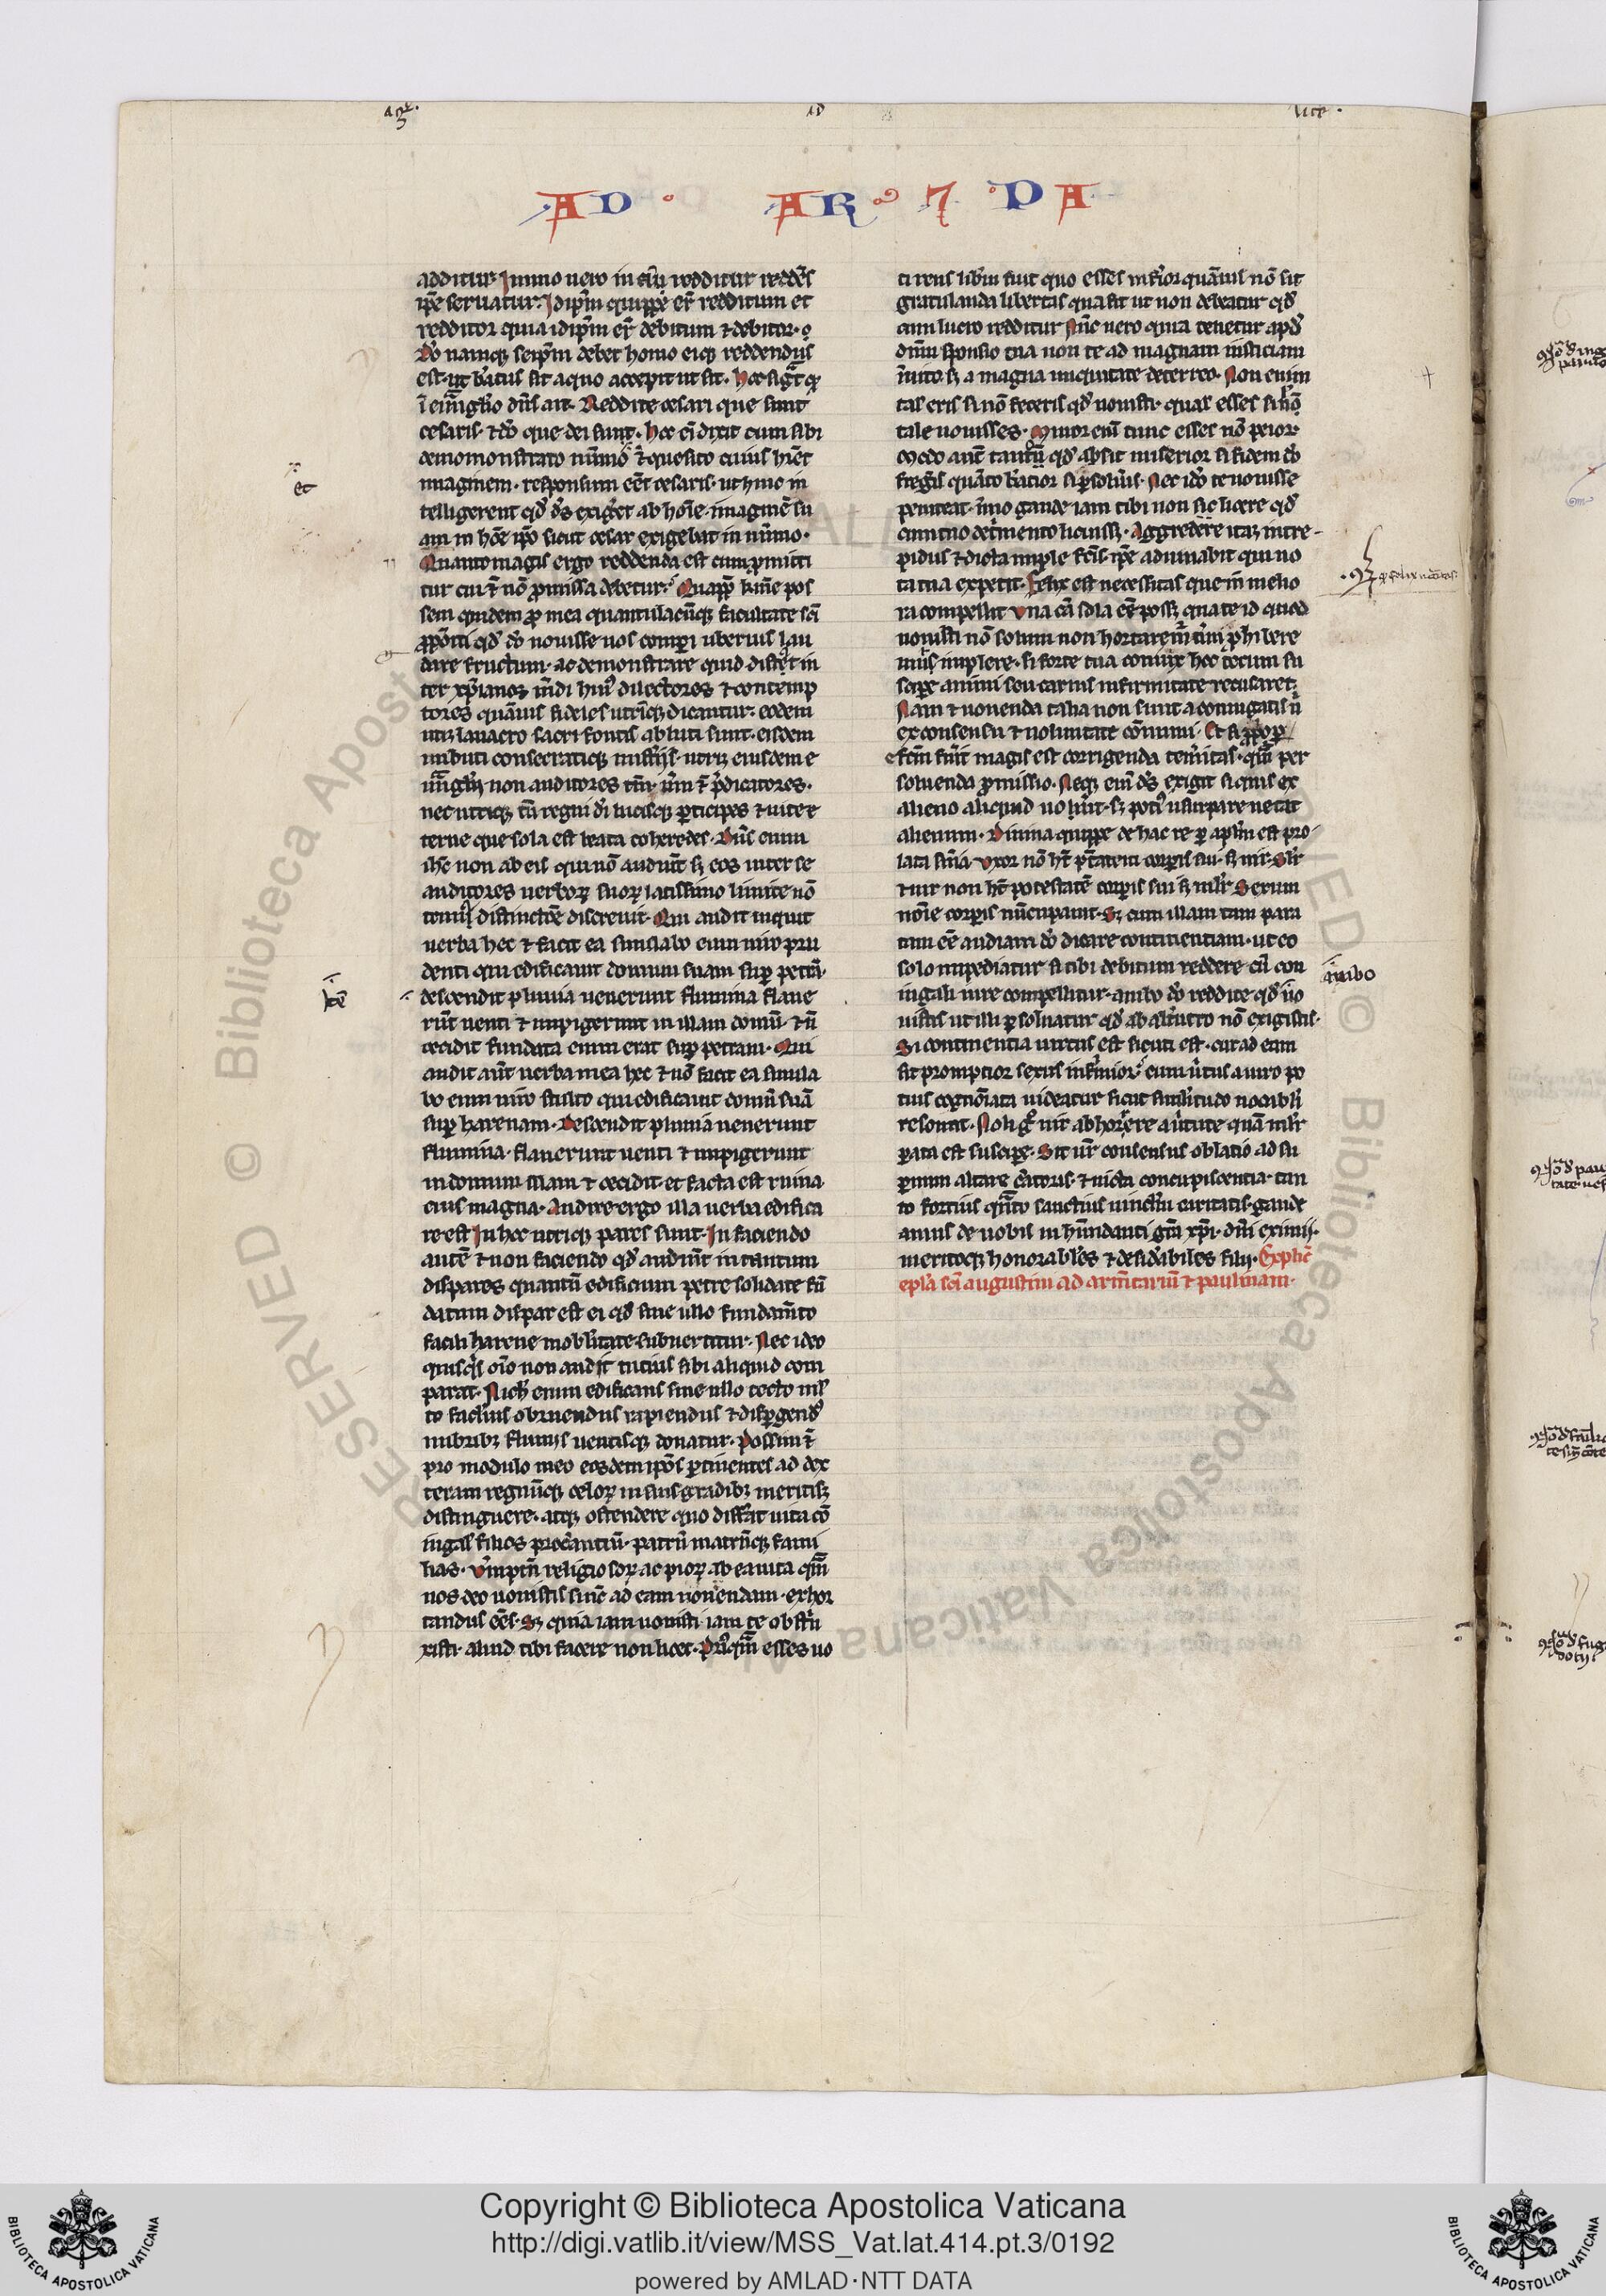 AD · AR · 7 · PA
additur. Immo uero in eũ redditur reddẽs
ip̃e seruatur. Idip̃m quippe er̃ redditum et
redditor quia idip̃m er̃ debitum ⁊ debitor.
Dõ namq; seip̃m debet homo eiq; reddendus
est. ut b̃atus sit a quo accepit ut sit. Hoc
dñs ait. Reddite cesari que sunt
cesaris. ⁊ dõ que dei sunt. Hoc eĩ dixit cum sibi
demomonstrato nũmo ⁊ quesito cuius hr̃et
imaginem. responsum eẽt cesaris. ut hinc in
telligerent qd̃ d̃s exiget ab hõie imaginẽ su
am in hõe ip̃o sicut cesar exigebat in nũmo.
Quanto magis ergo reddenda est cum promitti
tur cui ⁊ nõ promissa debetur. Quapp̃ hinc pos
sem quidem pro mea quantulacũq; facultate sc̃i
ppõiti qd̃ dõ uouisse uos comperi uberius lau
dare fructum. ac demonstrare quid distet in
ter xp̃ianos mũdi hui' dilectores ⁊ contemp
tores quãuis fideles utriq; dicantur. eodem
utiq; lauacro sacri fontis abluti sunt. eisdem
imbuti consecratiq; mist̃ijs. utriq; eiusdem e
uãgl̃ij non auditores tm̃. uerum ⁊ p̃dicatores.
nec utriq; tñ regni dĩ lucisq; participes ⁊ uite e
terne que sola est beata coheredes. Dñs enim
ih̃c non ab eis qui nõ audiũt sʒ eos inter se
auditores uerborum suorum latissimo limite nõ
distinctõe discreuit. Qui audit inquit
uerba hec ⁊ facit ea similabo eum uiro pru
denti qui edificauit domum suam super petrã.
descendit pluuia uenerunt flumina flaue
rũt uenti ⁊ impigerunt in illam domũ ⁊ ñ
cecidit fundata enim erat sup petram. Qui
audit aũt uerba mea hec ⁊ nõ facit ea simila
bo eum uiro stulto qui edificauit domũ suã
sup harenam. Descendit pluuia uenerunt
flumina. flauerunt uenti ⁊ impigerunt
in domum illam ⁊ cecidit. et facta est ruina
eius magna. Audire ergo illa uerba edifica
re est In hoc utriq; pares sunt. In faciendo
autẽ ⁊ non faciendo qd̃ audiũt in tantum
dispares quantũ edificium petre solidate fũ
datum dispar est ei qd̃ sine ullo fundam̃to
facili harene mobilitate subuertitur. Nec ideo
quisq̃s oĩo non audit tutius sibi aliquid com
parat. Nich̃ enim edificans sine ullo tecto ml'
to facilius obruendus rapiendus ⁊ dispergend'
imbribʒ fluuijs uentisq; donatur. Possim ⁊
pro modulo meo eosdem ip̃os pertinentes ad dex
teram regnũq; celorum in suis gradibʒ meritisq;
distinguere. atq; ostendere quo differat uita cõ
iugal' filios procreantiũ. patrũ matrũq; fami
lias. religiosorum ac piorum ab ea uita quã
uos deo uouistis sinc ad eam uouendam. exhor
tandus eẽs. Sʒ quia iam uouisti iam te obstri
xisti. aliud tibi facere non licet. Priusquam esses uo
ti reus libm̃ fuit quo esses inferior quãuis nõ sit
gratulanda libertas qua fit ut non debeatur qd̃
cum lucro redditur Nũc uero quia tenetur apd̃
dñm sponsio tua non te ad magnam iusticiam
inuito sʒ a magna iniquitate deterreo. Non enim
talis eris si nõ feceris qd̃ uouisti. qualis esses si nõ
tale uouisses. Minor enĩ tunc esses nõ peior.
Modo aut̃ tantũ qd̃ absit miserior si fidem dõ
fregeris quãto b̃atior si persolueris. Nec id̃o te uouisse
peniteat. imo gaude iam tibi non sic licere qd̃
cum tuo detrimento licuisset. Aggredere itaq; intre-
pidus ⁊ dicta imple fcĩs. ip̃e adiuuabit qui uo
ta tua expetit. Felix est necessitas que in melio
ra compellit Una cã sola eẽ posset qua te id quod
uouisti nõ solum non hortarem̃ uerum prohibere
mus implere. si forte tua coniux hec tecum su
scipe animi seu carnis infirmitate recusaret.
Nam ⁊ uouenda talia non sunt a coniugatis ñ
ex consensu ⁊ uoluntate cõmuni. Et si p̃pop̃
e fcm̃ fuerit magis est corrigenda temeritas. quam per
soluenda promissio. Neq; enĩ d̃s exigit si quis ex
alieno aliquid uouerit. sʒ poti' usurpare uetat
alienum. Diuina quippe de hac re per apl̃m est pro
lata sñia. Uxor nõ ht̃ p̃tatem corpis sui. sʒ uir. Sil'r
⁊ uir non ht̃ potestatẽ corpis sui sʒ ml'r. Sexum
noĩe corpis nũcupauit. Sʒ cum illam tam para
tam eẽ audiam dõ dicare continentiam. ut eo
solo impediatur si tibi debitum reddere cũ con
iugali iure compellitur. ambo dõ reddite qd̃ uo
uistis ut illi persoluatur qd̃ ab alterutro nõ exigistis.
Si continentia uirtus est sicuti est. cur ad eam
sit promptior sexus infirmior. cum uirtus a uiro po
tius cognominata uideatur sicut similitudo uocabuli
resonat. Noli g̃ uir abhorrere a uirtute quã ml'r
parata est suscipe. Sit ur̃ consensus oblatio ad su
pernum altare c̃atoris. ⁊ uicta concupiscentia. tan
to fortius quãto sanctius uinculum caritatis. gaude
amus de uobis in habundanti gr̃a xp̃i. dñi eximij.
meritoq; honorabiles ⁊ desid̃abiles filij. Explic̃
epl̃a sc̃i augustini ad arm̃tariũ ⁊ paulinam.
et
ambo
Copyright © Biblioteca Apostolica Vaticana
http://digi.vatlib.it/view/MSS_Vat.lat.414.pt.3/0192
powered by AMLAD·NTT DATA
BIBLIOTECA APOSTOLICA VATICANA
BIBLIOTECA APOSTOLICA VATICANA